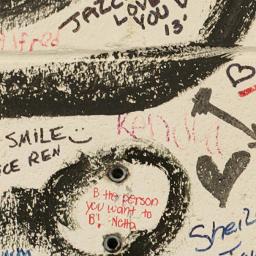 JAZZ
LOVE
YOU
13.
Alfred
B
SMILE
ICE REN
Kendra
B the person
you want to
B! -Netta
Sheiz